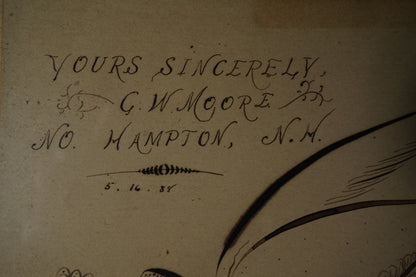 YOURS SINCERELY,
G. W. MOORE
NO. HAMPTON, N.H.
5. 16. 88